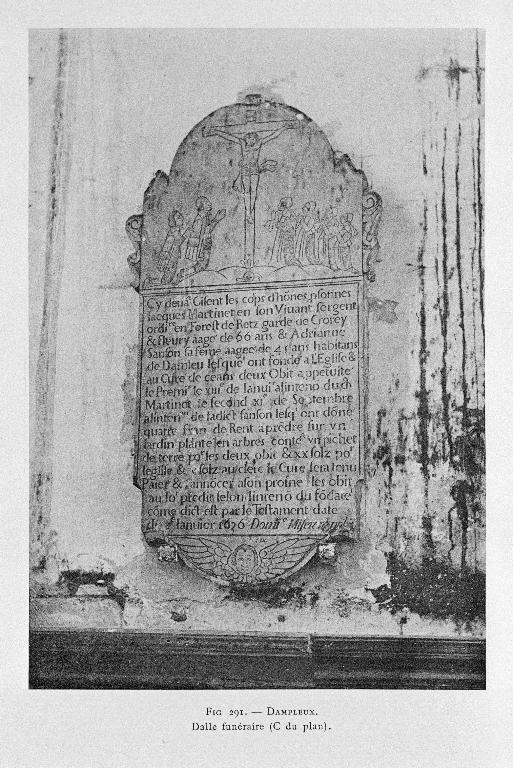 Cy devāt Gisent les cops d'hōnes psonnes
Jacques Martinet en son Viuant sergent
ordi^re en Forest de Retz garde de Crorey
& fleury aage de 66 ans & Adrianne
Sanson sa feme aagee de 4 ans habitans
de Damleu lesque ont fondé a L'Eglise &
au Cure de ceans deux Obit appetuite
le Premi^r le xiii^e de Ianui^r alinteno dud
Martinet le second xi^e de Septembre
alinten^on de ladict sanson lesq^l ont doñe
quatre de Rent aprēdre sur vn
Iardin plante en arbres conte^t vn pichet
de terre po^r les deux obit & xx solz po^r
leglise & solz au clerc le Cure sera tenu
Paier & annōcer a son prosne les obit
au jo^r predit selon linteno du fōdate^r
cōme dict est par le Testament date
d Ianuier 1676 Domi^e Miseremini
FIG. 291. — DAMPLEUX.
Dalle funéraire (C du plan).